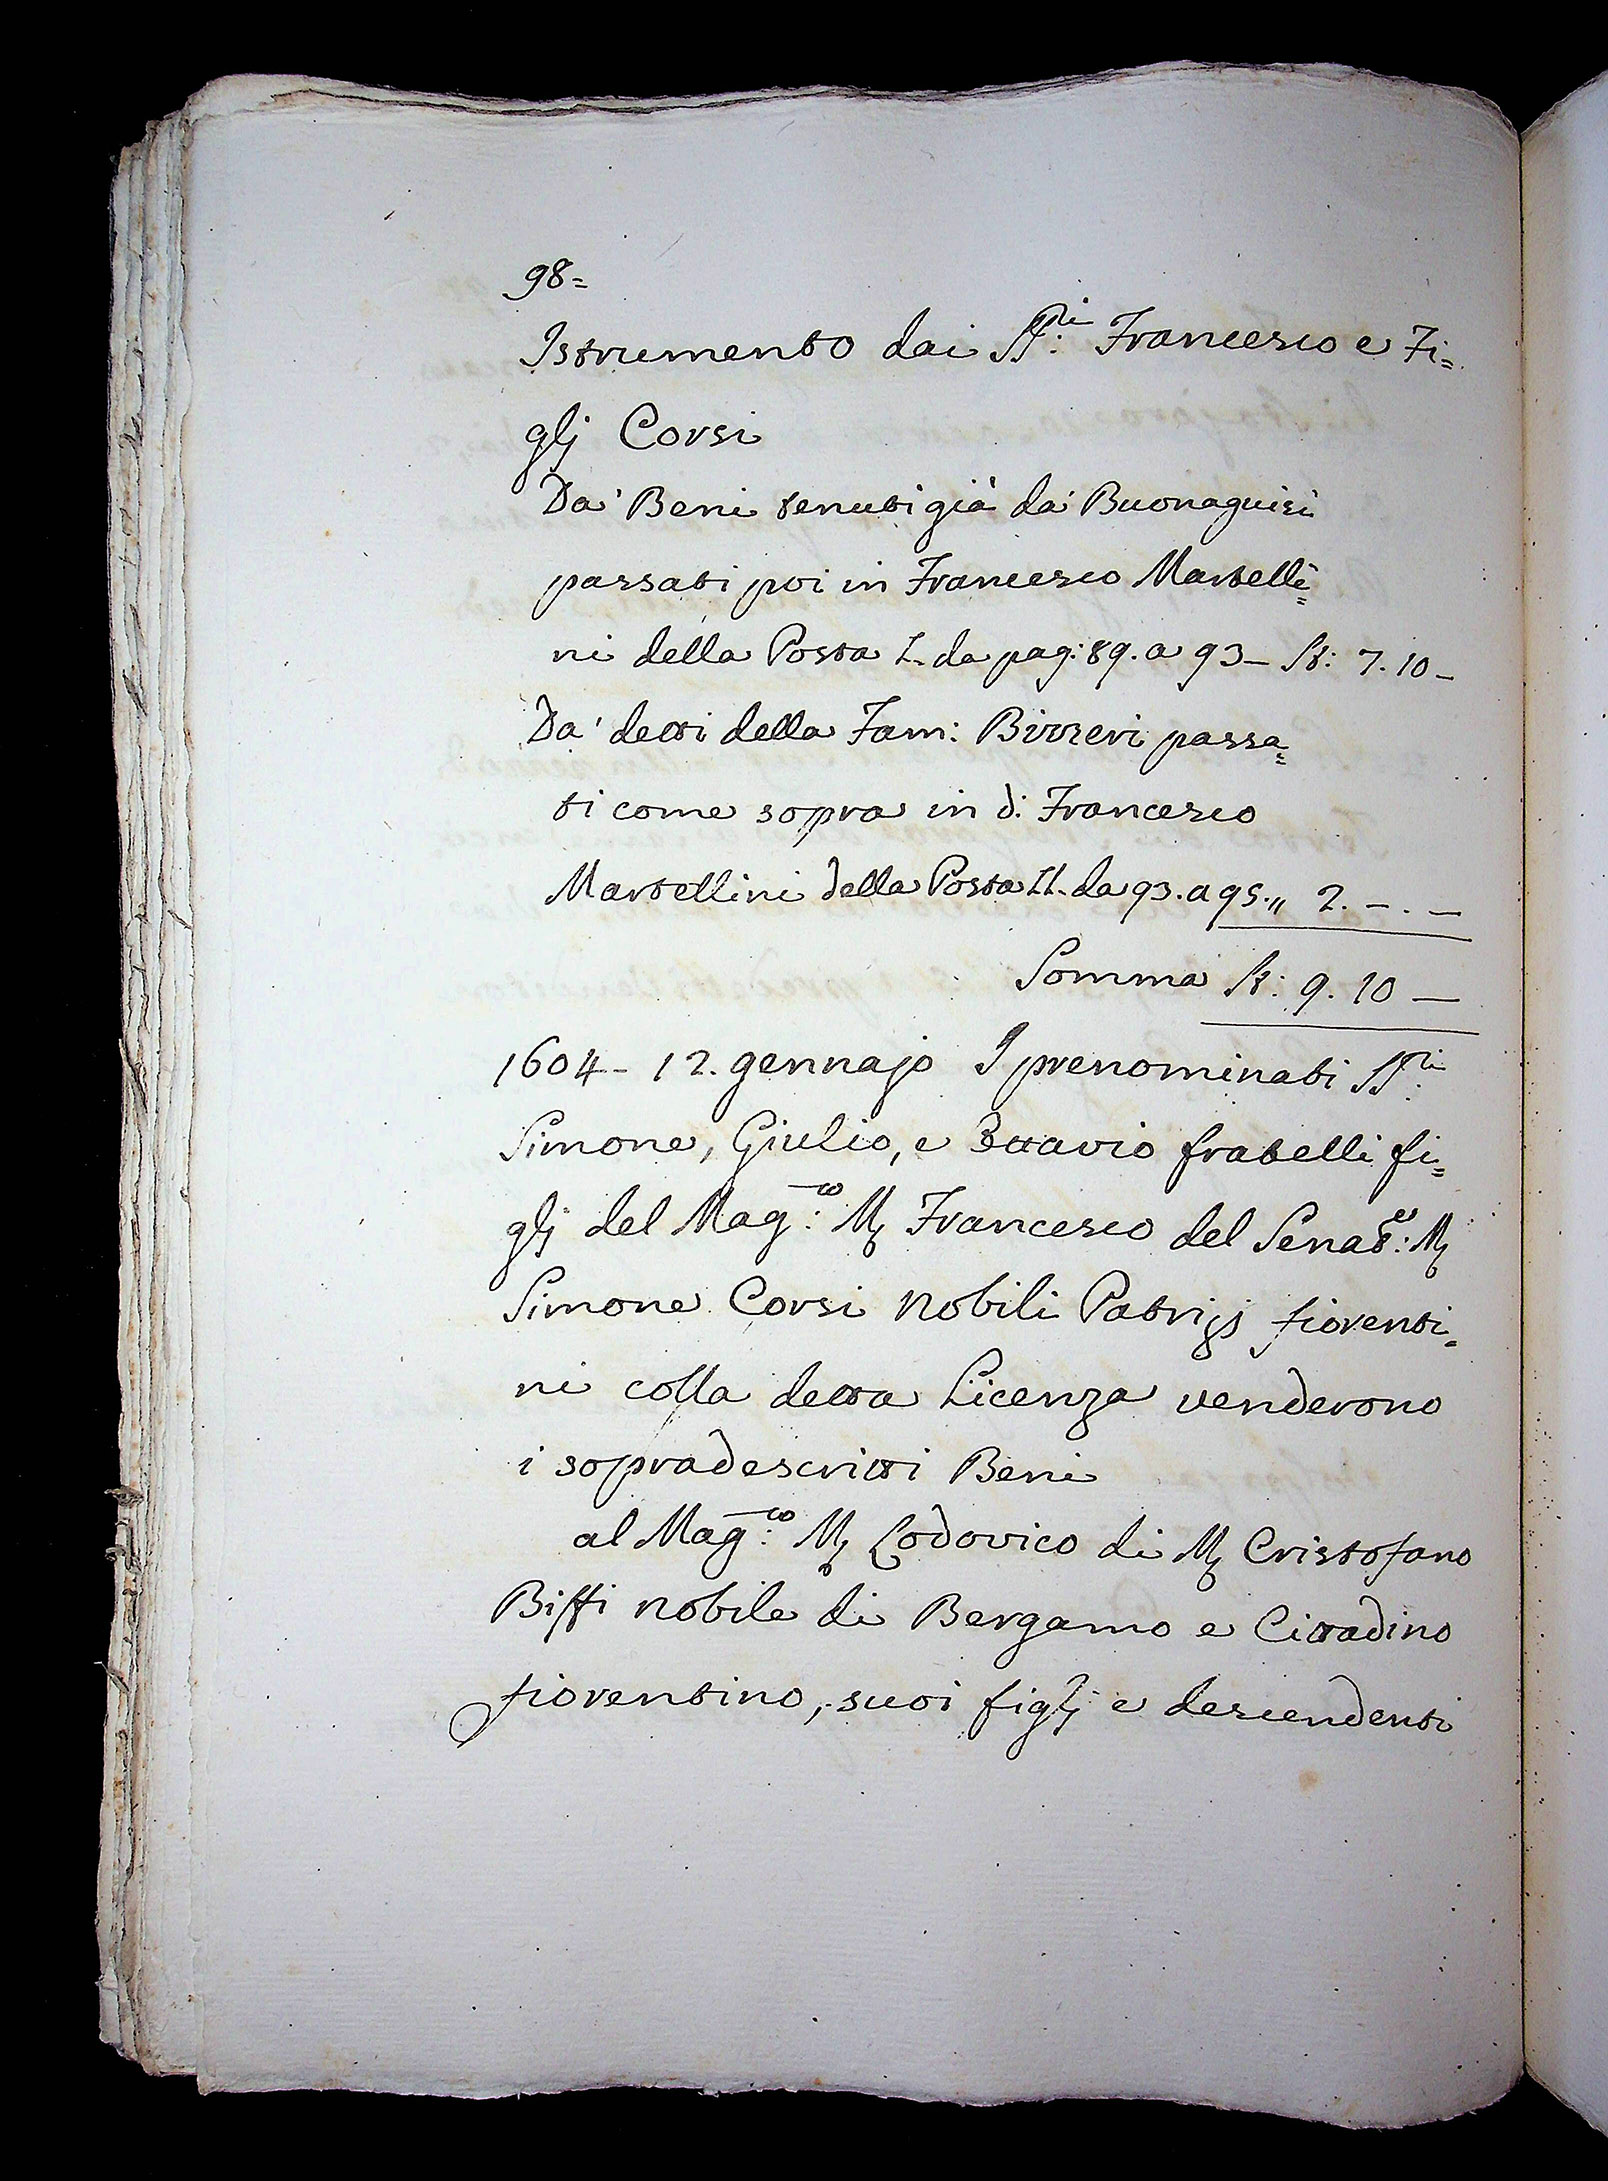 98=
Istrumento dai SS:ri Francesco e Fi=
glj Corsi
Da' Beni tenuti già da' Buonaguisi
passati poi in Francesco Martelli=
ni della Posta I. da pag: 89. a 93_ St: 7.10_
Da' detti della Fam: Birzeri passa=
ti come sopra in d: Francesco
Martellini della Posta II. da 93. a 95. „ 2. _._
Somma St: 9.10_
1604_ 12. gennajo I prenominati SS:ri
Simone, Giulio, e Ottavio fratelli fi=
glj del Mag:co M Francesco del Senat:re M
Simone Corsi Nobili Patrizj fiorenti=
ni colla detta Licenza venderono
i sopradescritti Beni
al Mag:co M Lodovico di M Cristofano
Biffi nobile di Bergamo e Cittadino
fiorentino, suoi figlj e descendenti